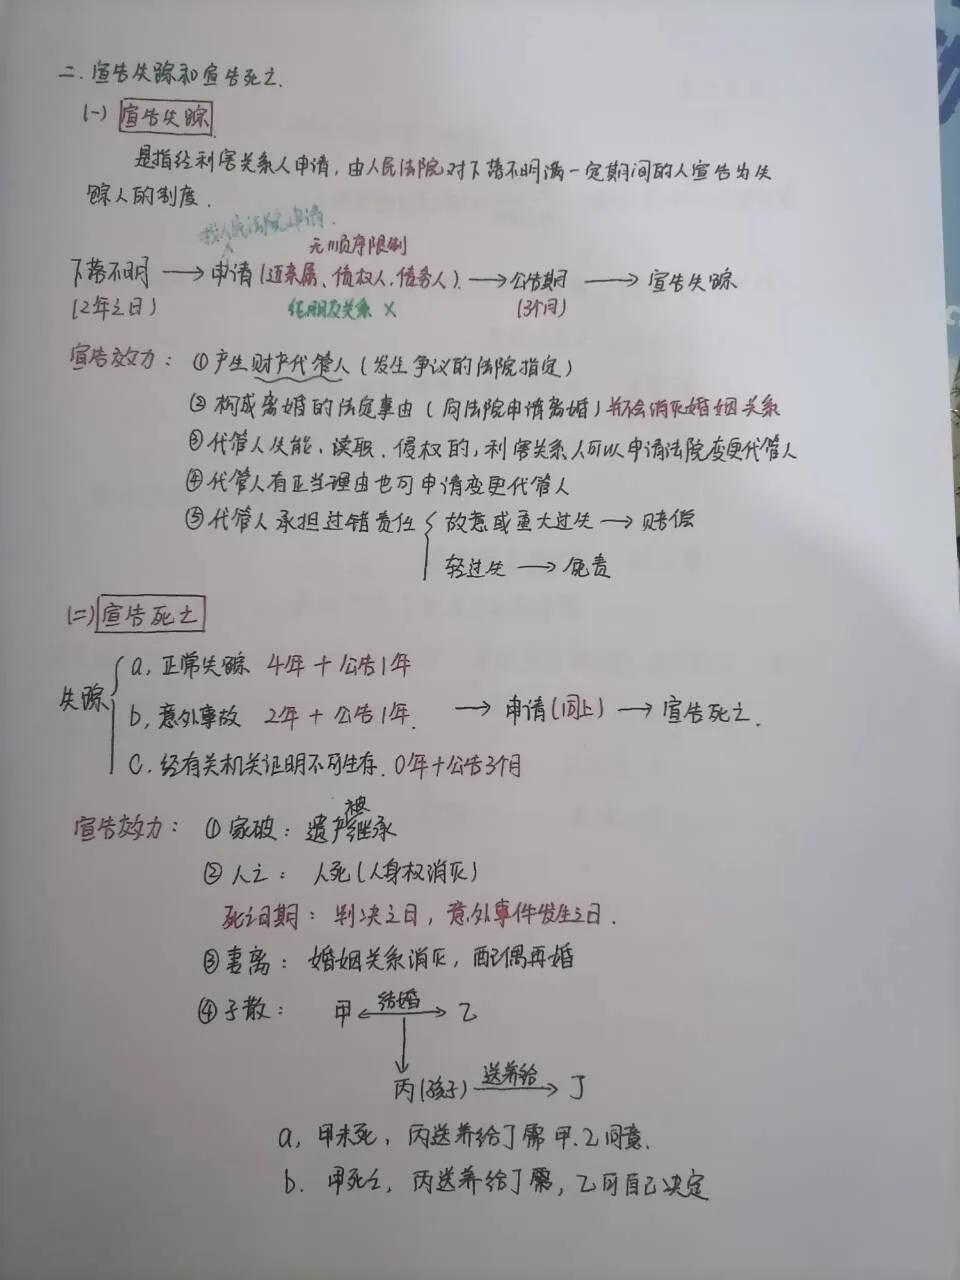 二.宣告失踪和宣告死亡.
(一) 宣告失踪
是指经利害关系人申请,由人民法院对下落不明满一定期间的人宣告为失
踪人的制度.
找人民法院申请.
无顺序限制
下落不明 → 申请(近亲属、债权人、债务人). → 公告期 → 宣告失踪
(2年之日) 纯朋友关系 × (3个月)
宣告效力: ①产生财产代管人(发生争议的法院指定)
②构成离婚的法定事由(向法院申请离婚)并不会消灭婚姻关系
③代管人失能、读取、侵权的,利害关系人可以申请法院变更代管人
④代管人有正当理由也可申请变更代管人
⑤代管人承担过错责任 { 故意或重大过失 → 赔偿
轻过失 → 免责
(二) 宣告死亡
a,正常失踪 4年+公告1年
失踪 { b,意外事故 2年+公告1年. → 申请(同上) → 宣告死亡.
C.经有关机关证明不可生存.0年+公告3个月
宣告效力: ①家破: 遗产被继承
②人亡: 人死(人身权消灭)
死亡日期: 判决之日,意外事件发生之日.
③妻离: 婚姻关系消灭,配偶再婚
④子散: 甲 ←结婚→ 乙
↓
丙(孩子) 送养给→ 丁
a,甲未死,丙送养给丁需甲.乙同意.
b.甲死亡,丙送养给丁需,乙可自己决定